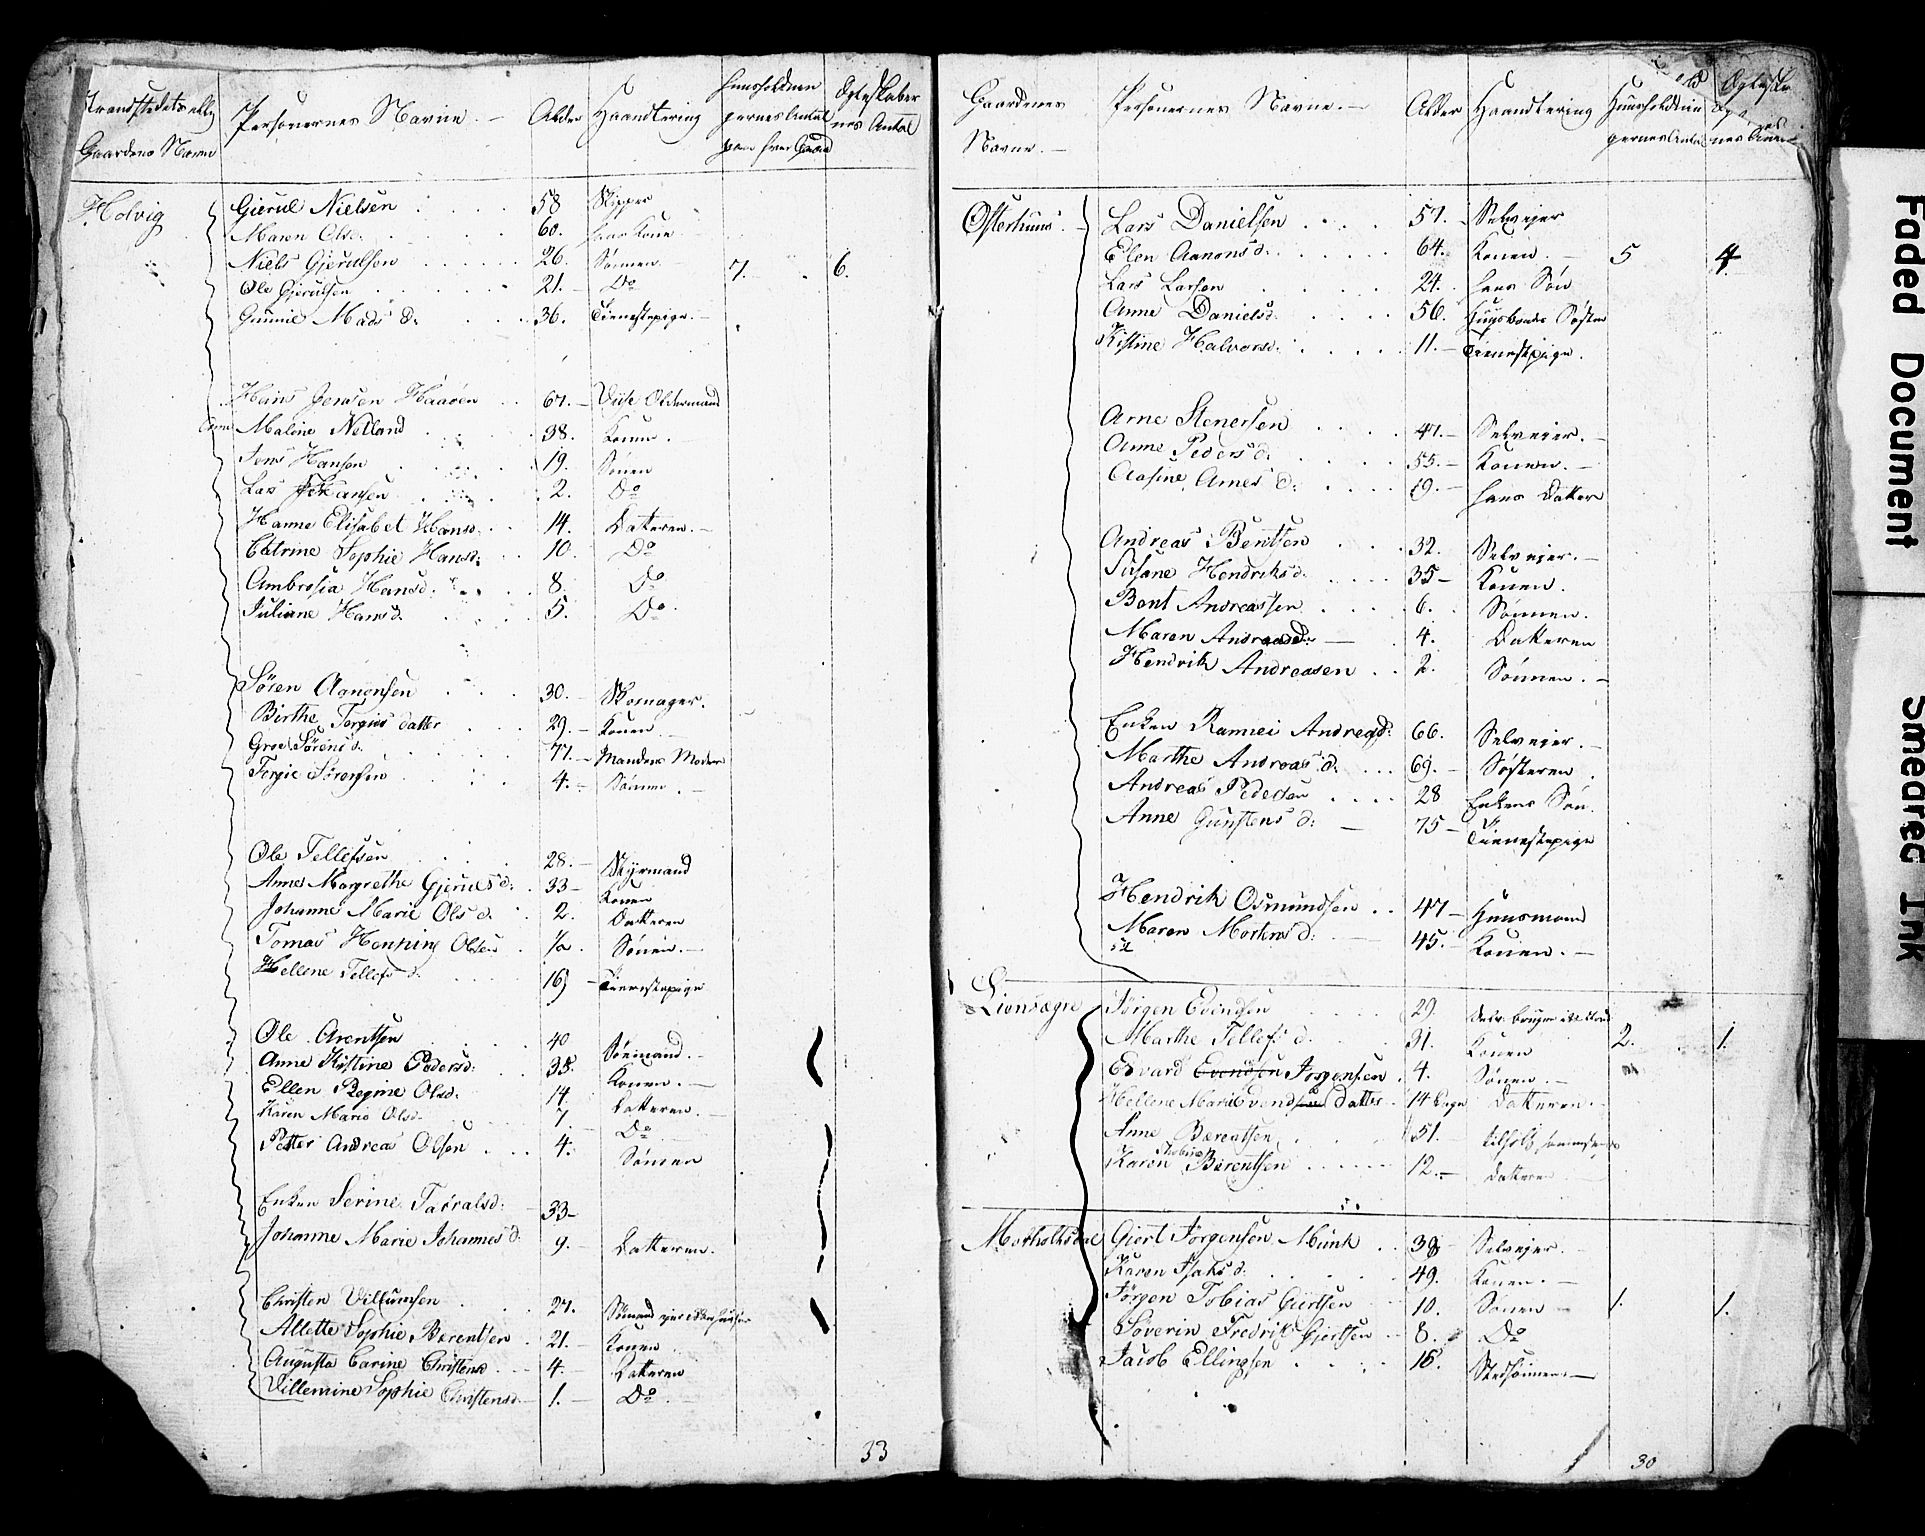 Gaardens Navne
Personernes Navne. Alder Haandtering
Holvig
Gierul Nielsen 58 Skipper
Maren Olsd: 60. hans Kone
Niels Gjerulsen 26. Sønnen
7. 6.
Ole Gjerulsen 21. Do
Gunnil Mads d: 36. Tienestepige.
Hans Jensen Haaøen 67. Viise Oldermand
Maline Netland 38. Konen.
Jens Hansen 19. Sønen
Lars Hansen 2. Do
Hanne Elisabet Hansd: 14. Datteren.
Catrine Sophie Hansd: 10. Do
Ambrosia Hansd. 8. Do
Juliane Hansd. 5. Do
Søren Aanonsen 30. Skomager.
Birthe Tergius datter 29. Konen
Groe Sørensd. 77. Mandens Moder
Tergie Sørensen 4. Sønnen.
Ole Tellefsen 28. Styrmand
Anne Margrethe Gjeruls d: 33 Konen
Johanne Marie Ols d. 2. Datteren
Tomas Henning Olsen ½ Sønen.
Hellene Tellefs d. 16 Tienestepige
Ole Arentsen 40 Søemand.
Anne Kistine Pedersd: 38. Konen.
Ellen Regine Olsd. 14 Datteren.
Karen Marie Olsd. 7. Do
Petter Andreas Olsen 4. Sønnen
Enken Serine Taaralsd: 33
Johanne Marie Johannes d: 9. Datteren.
Christen Villumsen 27. Sømand
Allette Sophie Berentsen 21. Konen
Augusta Carine Christensd 4. Datteren
Villemine Sophie Christensd. 1. Do
33
Gaardenes Navne.
Personernes Navne. Alder Haandtering
Østerhuus
Lars Danielsen 57. Selvejer
Elen Aanonsd. 64. Konen. 5 4
Lars Larsen 24. hans Søn
Anne Danielsd. 56. Huusbonds Søster
Kistine Halvorsd. 11. Tienestpige.
Arne Stenersen 47. Selveier.
Anne Peders d. 55. Konen.
Aasine Arnes d: 19. hans Datter
Andreas Bentsen 32. Selveier.
Susane Hendriksd. 35 Konen.
Bent Andreassen 6. Sønnen.
Maren Andreasd. 4. Datteren
Hendrik Andreasen 2. Sønnen.
Enken Ramnei Andreasd: 66. Selveier.
Marthe Andreas d. 69. Søsteren
Andreas Pedersen 28 Enkens Søn.
Anne Gunstens d: 75 Tienestepige
Hendrik Osmundsen 47 Huusmand
Maren Mortens d: 45. Konen.
Lionsøgre
Jørgen Evindsen 29.
Marthe Tellefs d. 31. Konen 2. 1.
Edvard Evendsen Jørgensen 4. Sønen.
Hellene Marie datter 14 Dage Datteren.
Anne Berentsen 51.
Karen Berentsen 12. datteren
Morholtsdal
Giert Jørgensen Munk 38 Selvejer.
Karen Isaks d. 49. Konen.
Jørgen Tobias Giertsen 10. Sønen 1. 1.
Søverin Fredrik Gjertsen 8. Do
Jacob Ellingsen 15. Stedsønnen
30
Faded Document
Smeared Ink